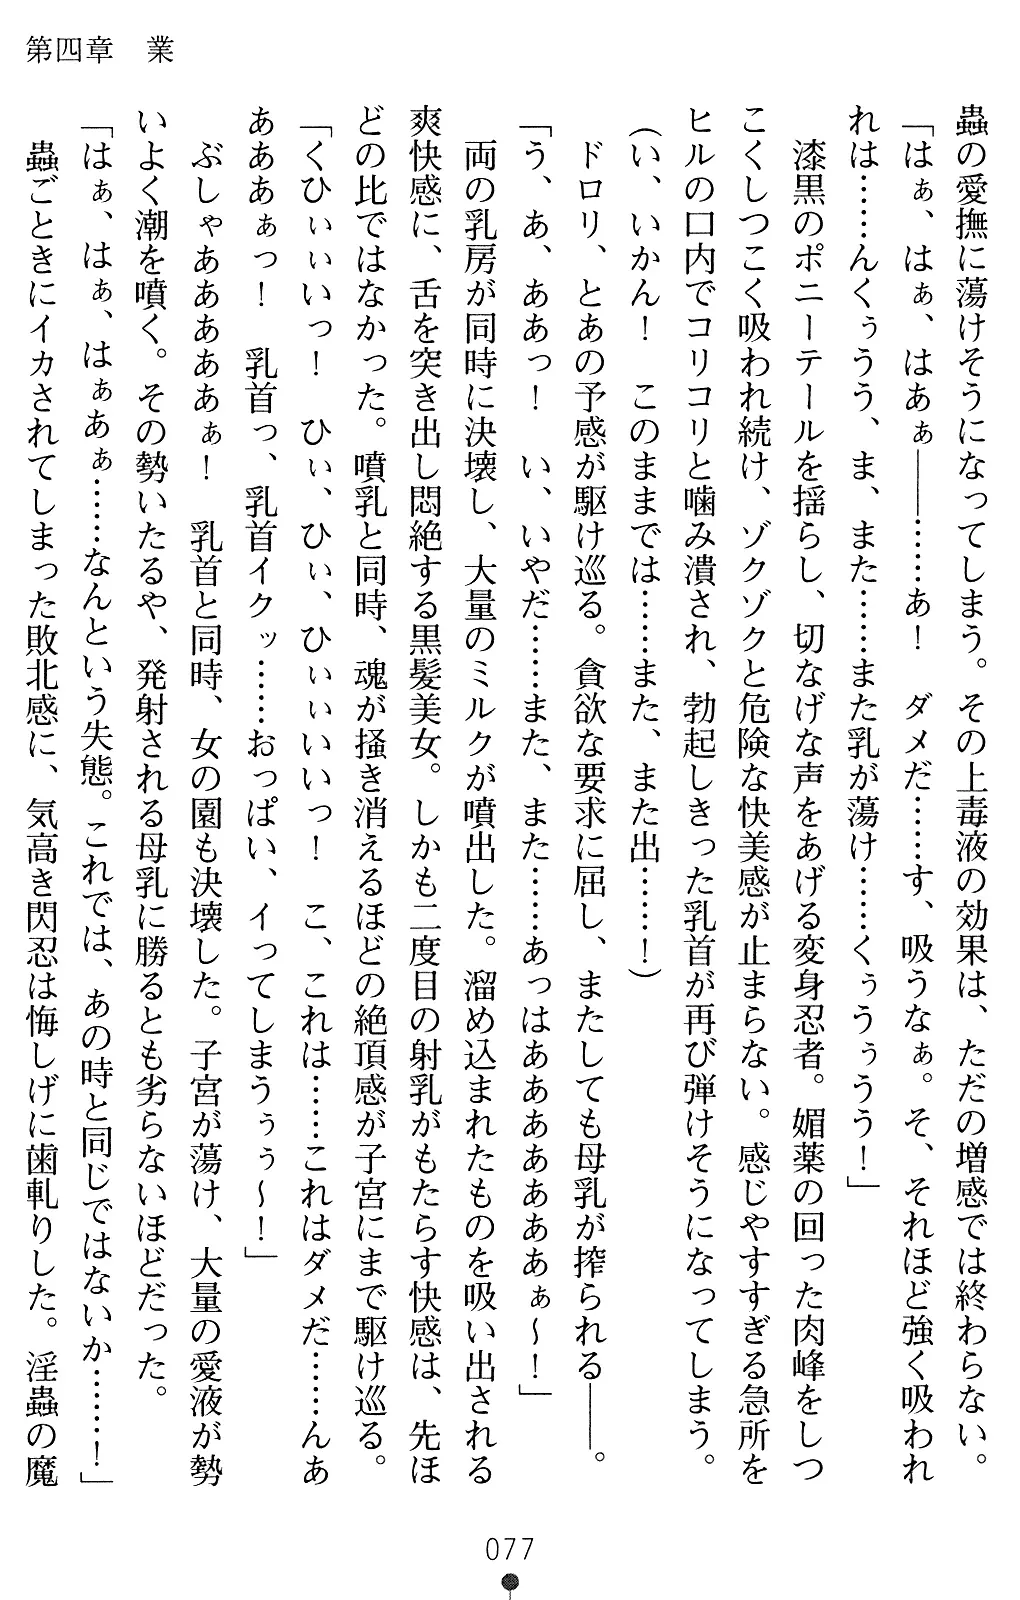 第四章　業
蟲の愛撫に蕩けそうになってしまう。その上毒液の効果は、ただの増感では終わらない。
「はぁ、はぁ、はあぁ――……あ！　ダメだ……す、吸うなぁ。そ、それほど強く吸われ
れは……んくぅうう、ま、また……また乳が蕩け……くぅうぅうう！」
　漆黒のポニーテールを揺らし、切なげな声をあげる変身忍者。媚薬の回った肉峰をしつ
こくしつこく吸われ続け、ゾクゾクと危険な快美感が止まらない。感じやすすぎる急所を
ヒルの口内でコリコリと噛み潰され、勃起しきった乳首が再び弾けそうになってしまう。
（い、いかん！　このままでは……また、また出……！）
　ドロリ、とあの予感が駆け巡る。貪欲な要求に屈し、またしても母乳が搾られる――。
「う、あ、ああっ！　い、いやだ……また、また……あっはああああああぁ～！」
　両の乳房が同時に決壊し、大量のミルクが噴出した。溜め込まれたものを吸い出される
爽快感に、舌を突き出し悶絶する黒髪美女。しかも二度目の射乳がもたらす快感は、先ほ
どの比ではなかった。噴乳と同時、魂が掻き消えるほどの絶頂感が子宮にまで駆け巡る。
「くひぃぃいっ！　ひぃ、ひぃ、ひぃぃいいっ！　こ、これは……これはダメだ……んあ
あああぁっ！　乳首っ、乳首イクッ……おっぱい、イってしまうぅぅ～！」
　ぶしゃああああああぁ！　乳首と同時、女の園も決壊した。子宮が蕩け、大量の愛液が勢
いよく潮を噴く。その勢いたるや、発射される母乳に勝るとも劣らないほどだった。
「はぁ、はぁ、はぁあぁ……なんという失態。これでは、あの時と同じではないか……！」
　蟲ごときにイカされてしまった敗北感に、気高き閃忍は悔しげに歯軋りした。淫蟲の魔
077